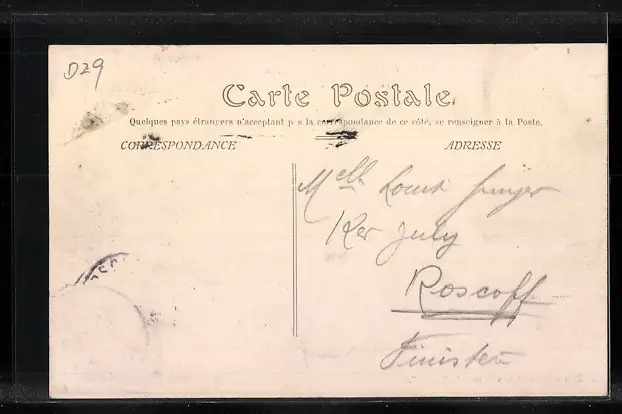 D29
Carte Postale.
Quelques pays étrangers n'acceptant p s la correspondance de ce côté, se renseigner à la Poste.
CORRESPONDANCE
ADRESSE
Melle
Ker July
Roscoff
Finistère